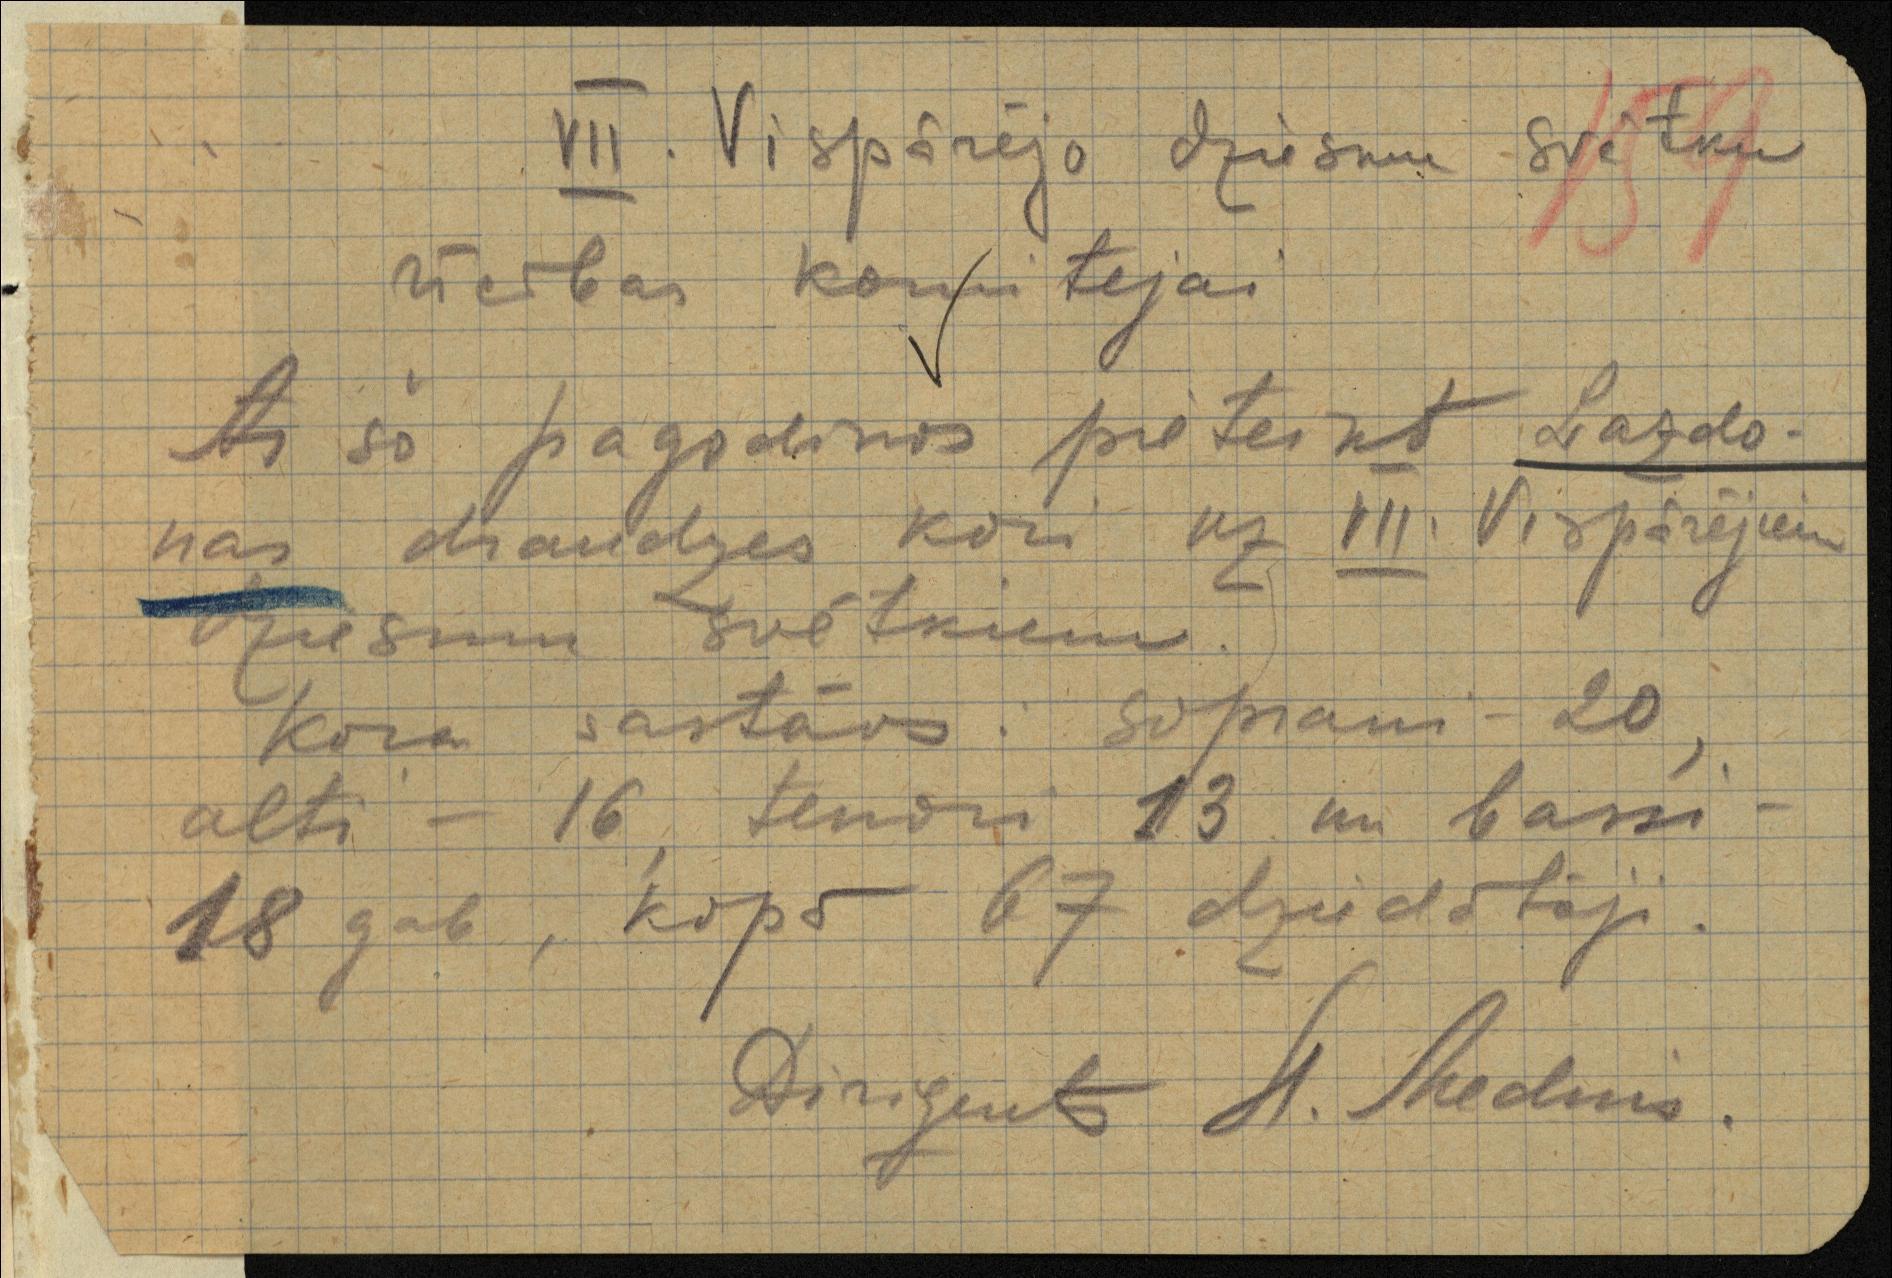 159
VII. Vispārējo dziesmu svētku
rīcības komitejai
Ar šo pagodinos pieteikt Lazdo-
nas draudzes kori uz VII. Vispārējiem
dziesmu svētkiem.
Kora sastāvs: soprani - 20,
alti - 16, tenori 13 un bassi -
18 gab, kopā 67 dziedātāji.
Dirigents